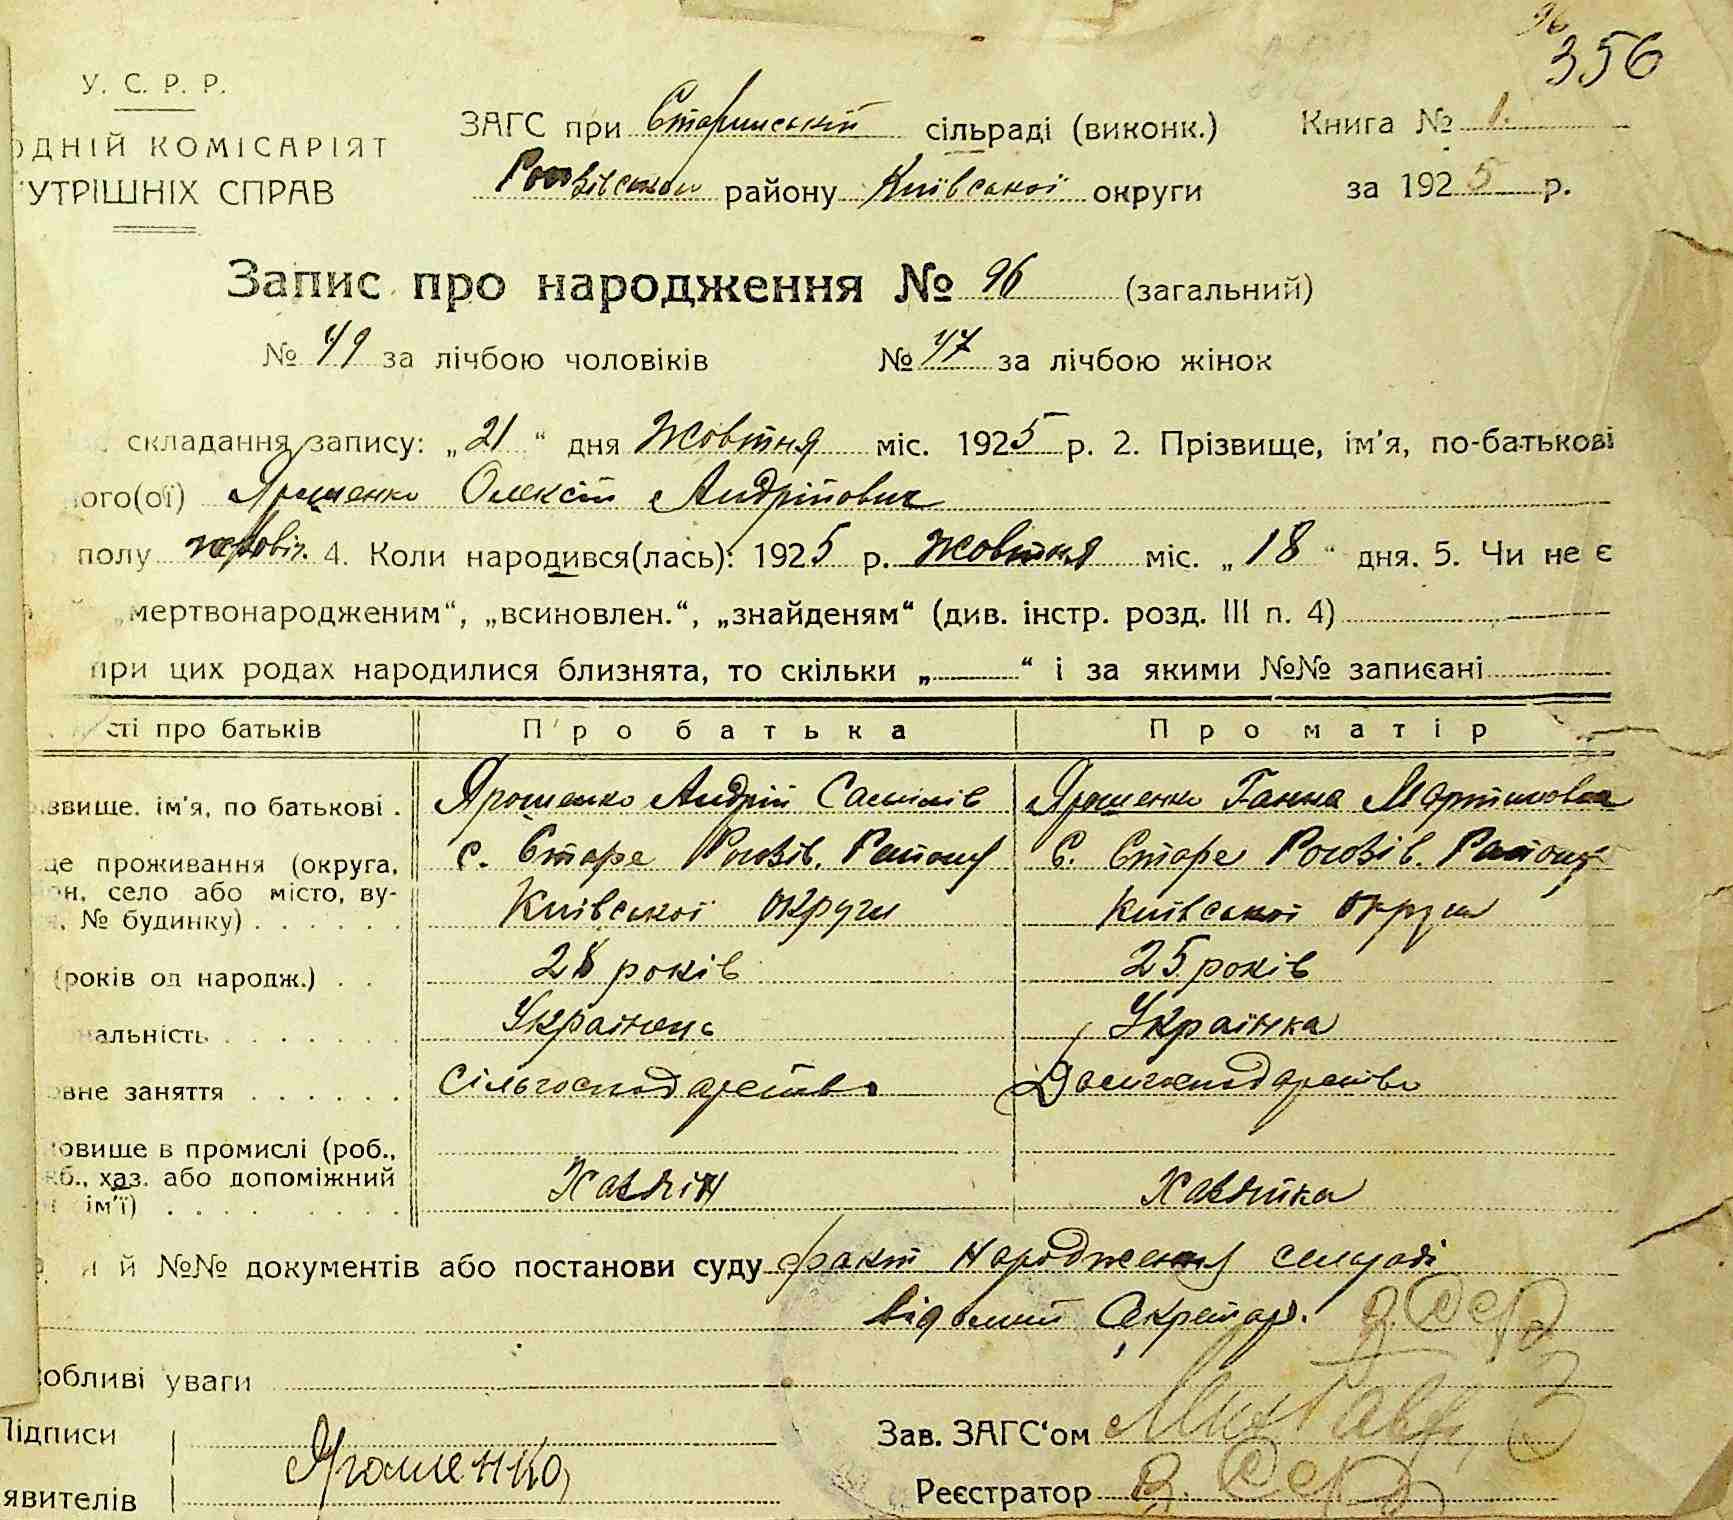 96
356
У. С. Р. Р.
ОДНІЙ КОМІСАРІЯТ
УТРІШНІХ СПРАВ
ЗАГС при Старинській сільраді (виконк.)
Рогозівськом району Київської округи
Книга № 1.
за 1925 р.
Запис про народження № 96 (загальний)
№ 49 за лічбою чоловіків № 47 за лічбою жінок
складання запису: „21" дня Жовтня міс. 1925 р. 2. Прізвище, ім'я, по-батькові
ного(ої) Ярошенко Олексій Андрійович
полу чоловіч. 4. Коли народився(лась): 1925 р. Жовтня міс. „18" дня. 5. Чи не є
„мертвонародженим", „всиновлен.", „знайденям" (див. інстр. розд. III п. 4)
при цих родах народилися близнята, то скільки „—" і за якими №№ записані
сті про батьків Про батька Про матір
звище. ім'я, по батькові . Ярошенко Андрій Самілів Ярошенко Ганна Мартиновна
це проживання (округа, с. Старе Рогозів. Району С. Старе Рогозів. Району
он, село або місто, ву-
, № будинку) . . . . . . Київської округи Київської округи
(років од народж.) . . 28 років 25 років
нальність . . . . . . . Українець Українка
вне заняття . . . . . . Сільгосподарство Домгосподарство
новище в промислі (роб.,
б., хаз. або допоміжний Хазяїн Хазяйка
ім'ї) . . . . . . . .
й №№ документів або постанови суду факт народження сельраді
відомий Секретар.
обливі уваги
Підписи
явителів
Ярошенко
Зав. ЗАГС'ом
Реєстратор